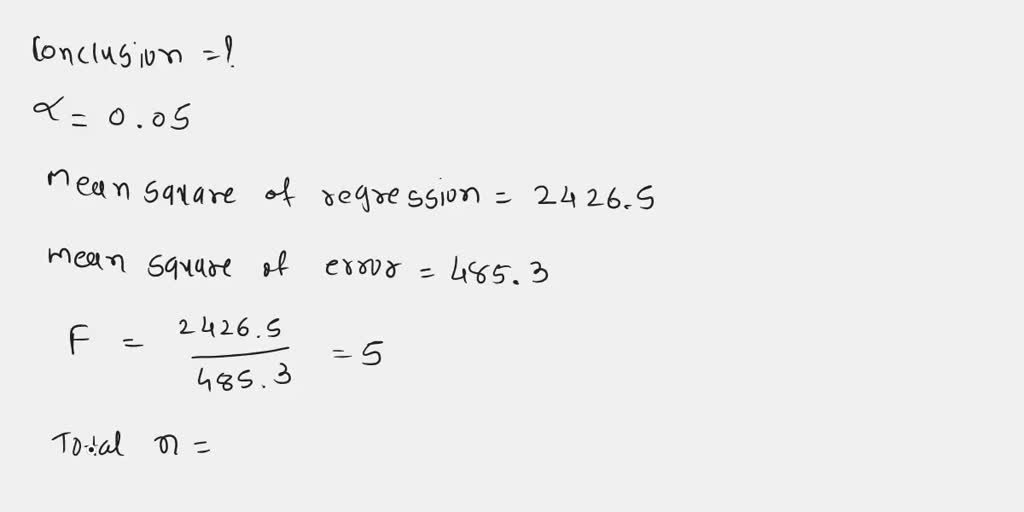 Conclusion = ?
α = 0.05
mean square of regression = 2426.5
mean square of error = 485.3
F = 2426.5 / 485.3 = 5
Total n =